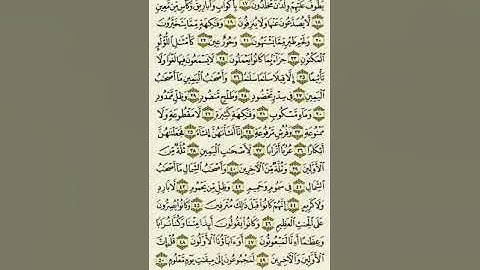 يَطُوفُ عَلَيْهِمْ وِلْدَٰنٌ مُّخَلَّدُونَ ١٧ بِأَكْوَابٍ وَأَبَارِيقَ وَكَأْسٍ مِّن مَّعِينٍ
١٨ لَّا يُصَدَّعُونَ عَنْهَا وَلَا يُنزِفُونَ ١٩ وَفَٰكِهَةٍ مِّمَّا يَتَخَيَّرُونَ
٢٠ وَلَحْمِ طَيْرٍ مِّمَّا يَشْتَهُونَ ٢١ وَحُورٌ عِينٌ ٢٢ كَأَمْثَٰلِ ٱللُّؤْلُؤِ
ٱلْمَكْنُونِ ٢٣ جَزَآءًۢ بِمَا كَانُوا۟ يَعْمَلُونَ ٢٤ لَا يَسْمَعُونَ فِيهَا لَغْوًا وَلَا
تَأْثِيمًا ٢٥ إِلَّا قِيلًا سَلَٰمًا سَلَٰمًا ٢٦ وَأَصْحَٰبُ ٱلْيَمِينِ مَآ أَصْحَٰبُ
ٱلْيَمِينِ ٢٧ فِى سِدْرٍ مَّخْضُودٍ ٢٨ وَطَلْحٍ مَّنضُودٍ ٢٩ وَظِلٍّ مَّمْدُودٍ
٣٠ وَمَآءٍ مَّسْكُوبٍ ٣١ وَفَٰكِهَةٍ كَثِيرَةٍ ٣٢ لَّا مَقْطُوعَةٍ وَلَا
مَمْنُوعَةٍ ٣٣ وَفُرُشٍ مَّرْفُوعَةٍ ٣٤ إِنَّآ أَنشَأْنَٰهُنَّ إِنشَآءً ٣٥ فَجَعَلْنَٰهُنَّ
أَبْكَارًا ٣٦ عُرُبًا أَتْرَابًا ٣٧ لِّأَصْحَٰبِ ٱلْيَمِينِ ٣٨ ثُلَّةٌ مِّنَ
ٱلْأَوَّلِينَ ٣٩ وَثُلَّةٌ مِّنَ ٱلْـَٔاخِرِينَ ٤٠ وَأَصْحَٰبُ ٱلشِّمَالِ مَآ أَصْحَٰبُ
ٱلشِّمَالِ ٤١ فِى سَمُومٍ وَحَمِيمٍ ٤٢ وَظِلٍّ مِّن يَحْمُومٍ ٤٣ لَّا بَارِدٍ
وَلَا كَرِيمٍ ٤٤ إِنَّهُمْ كَانُوا۟ قَبْلَ ذَٰلِكَ مُتْرَفِينَ ٤٥ وَكَانُوا۟ يُصِرُّونَ
عَلَى ٱلْحِنثِ ٱلْعَظِيمِ ٤٦ وَكَانُوا۟ يَقُولُونَ أَئِذَا مِتْنَا وَكُنَّا تُرَابًا
وَعِظَٰمًا أَءِنَّا لَمَبْعُوثُونَ ٤٧ أَوَءَابَآؤُنَا ٱلْأَوَّلُونَ ٤٨ قُلْ إِنَّ
ٱلْأَوَّلِينَ وَٱلْـَٔاخِرِينَ ٤٩ لَمَجْمُوعُونَ إِلَىٰ مِيقَٰتِ يَوْمٍ مَّعْلُومٍ ٥٠